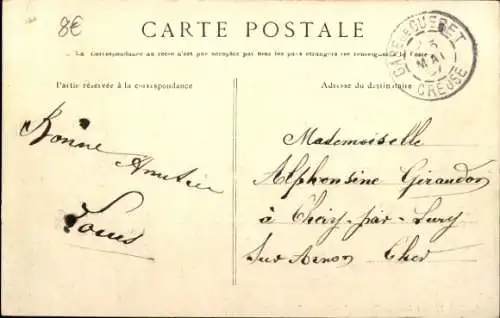 8€
CARTE POSTALE
La Correspondance au recto n'est pas acceptée par tous les pays étrangers (se renseigner à la Poste)
GARE DE GUERET
5
MAI
07
CREUSE
Partie réservée à la correspondance
Adresse du destinataire
Bonne
Amitié
Louis
Mademoiselle
Alphonsine Giraudon
à Chery-par-Lury
Sur Arnon Cher